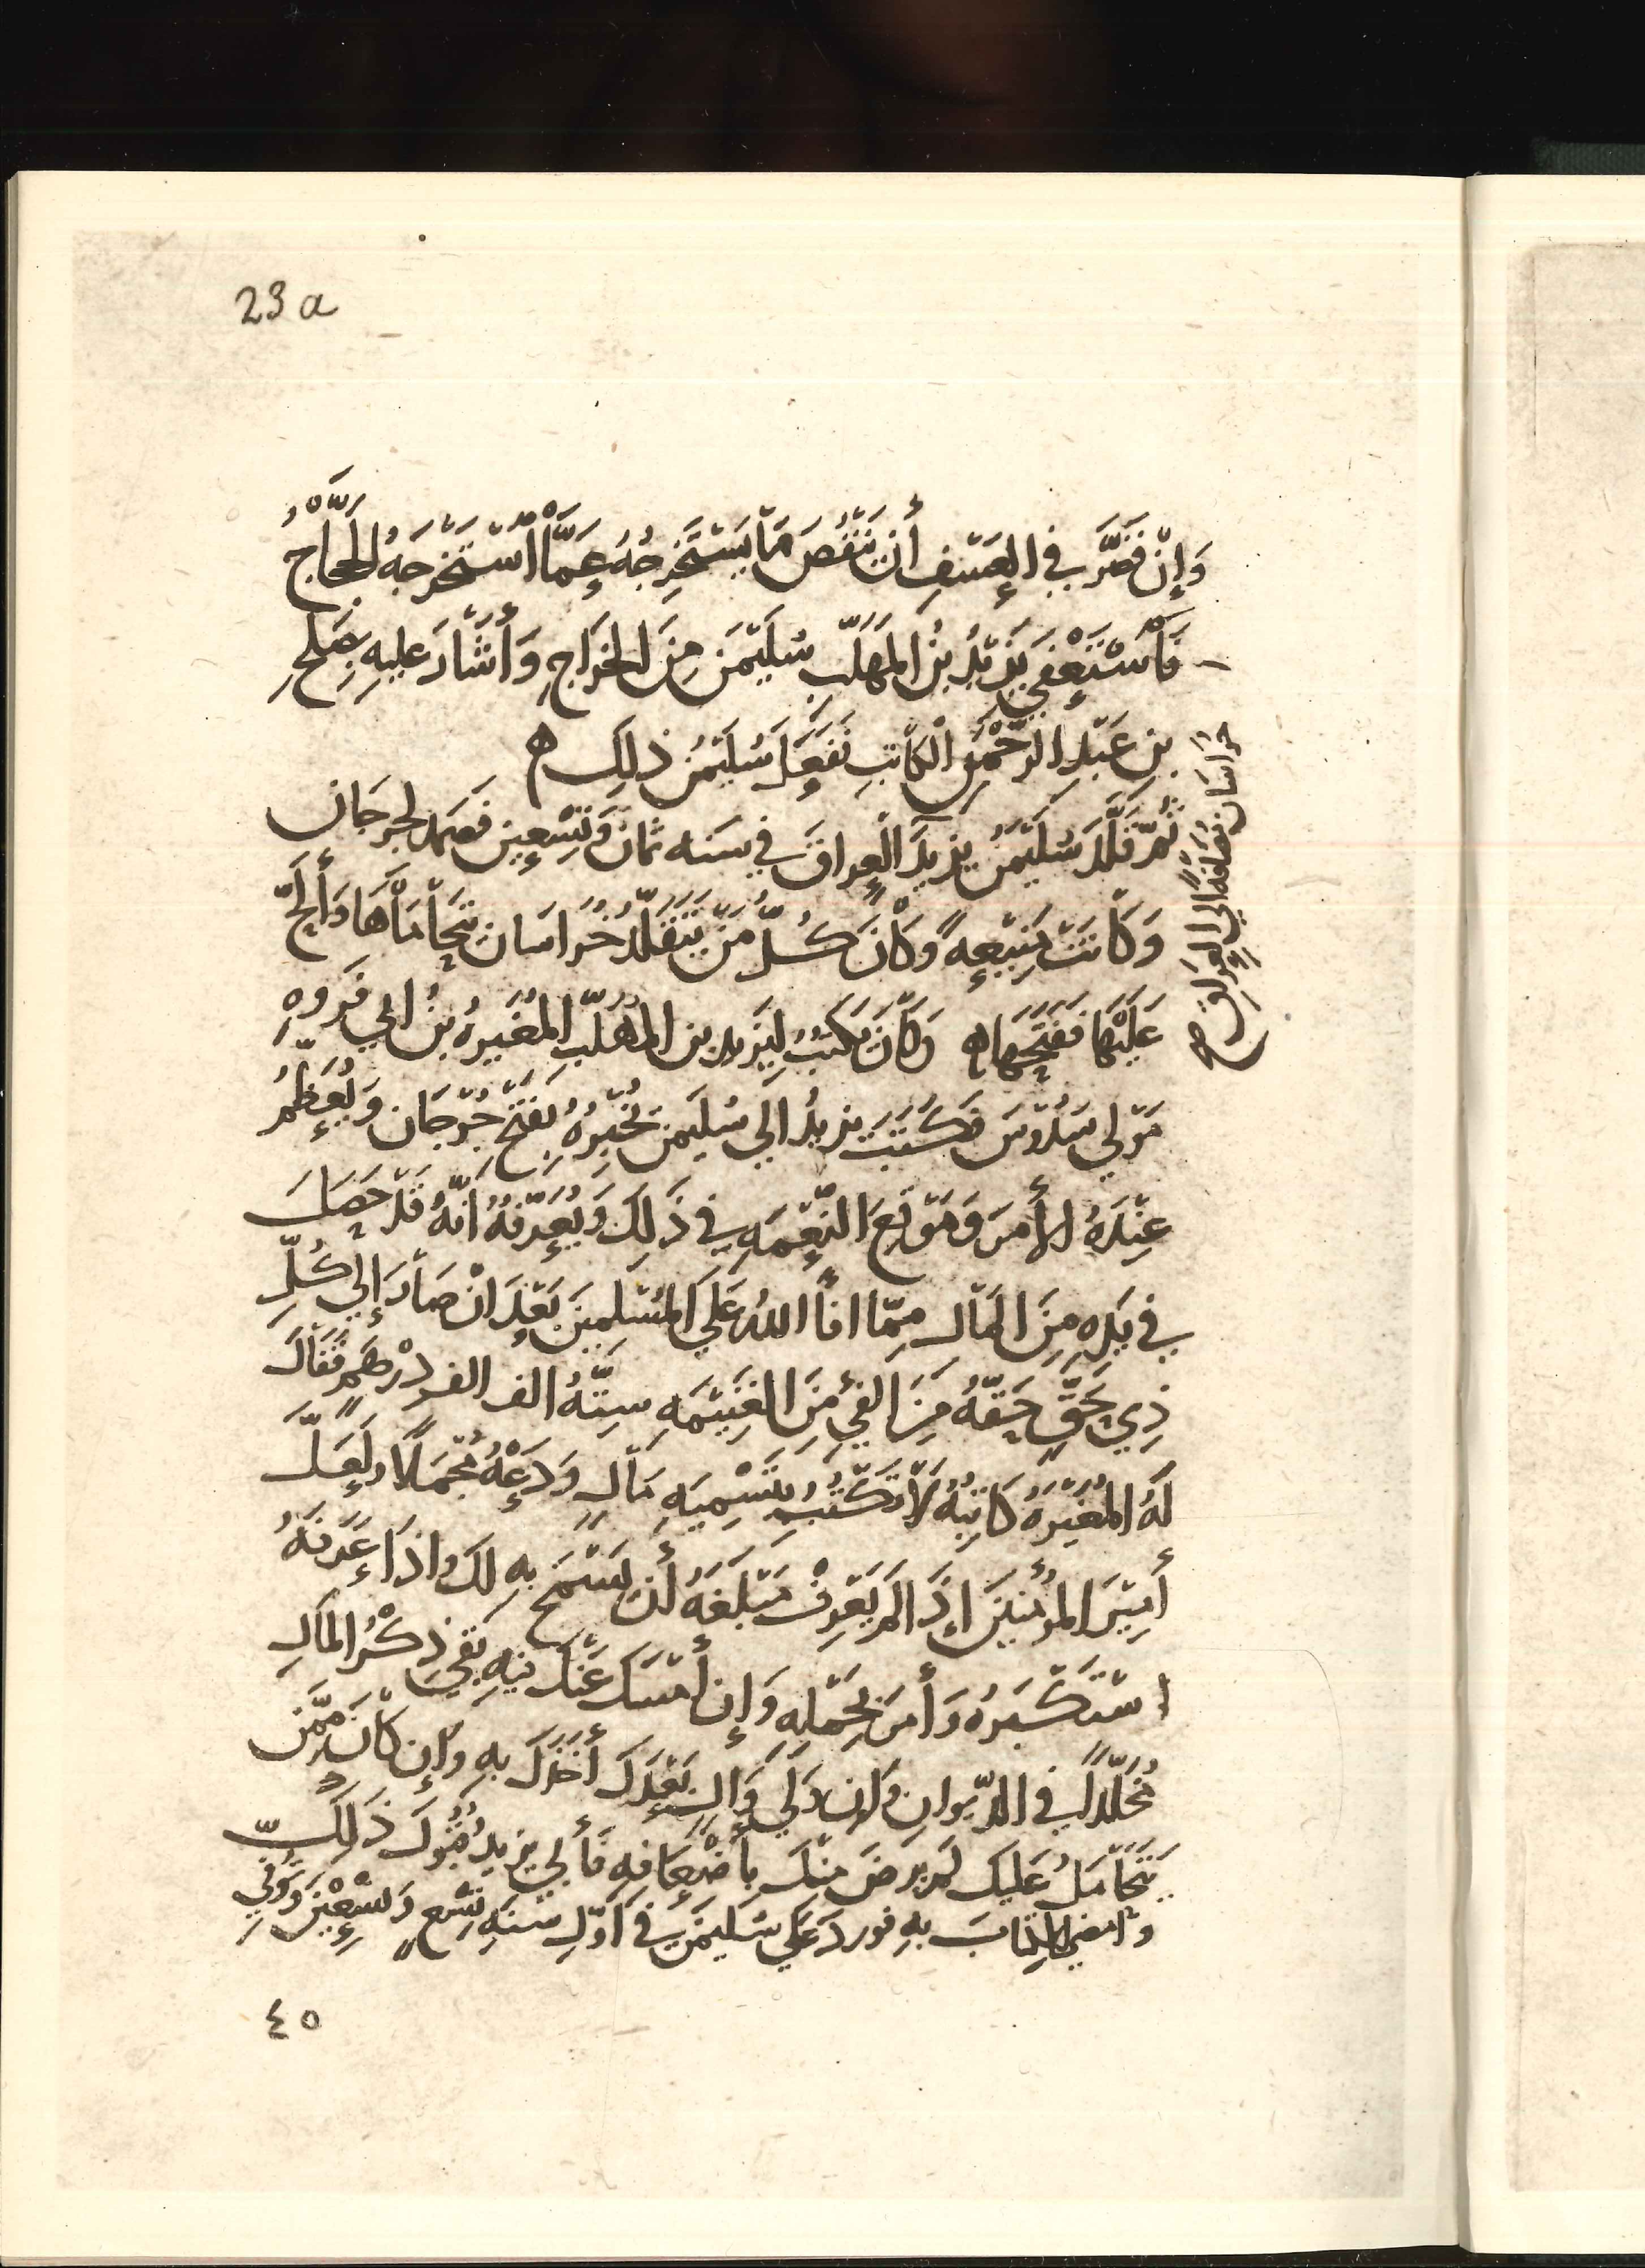 23 a
وَإِنْ قَصَّرَ في العَسْفِ أن يَنْقُصَ مَا يَسْتَخرِجُهُ عَمَّا اسْتَخرَجَهُ الحَجَّاجُ
فَاسْتَعْفَى يَزِيْدُ بنُ المُهَلَّبِ سُلَيْمٰنَ مِنَ الخَرَاجِ وَأشَارَ عليهِ بِصَلحِ
بنِ عَبْدِ الرَّحْمٰنِ الْكَاتِبِ فَفَعَلَ سُلَيْمٰنُ ذلِكَ ه
ثُمَّ قَلَّدَ سُلَيْمٰنُ يزِيدَ الْعِراقَ في سَنه ثمان وَتِسْعِين فصَمَد لجرجَان
خراسان مُضَافَةً الى العِرَاقِ صح
وَكَانَتْ مَنِيْعَةً وَكَانَ كُلُّ مَنْ يَتَقَلَّدُ خُرَاسَان يَتَحَامَاهَا وَألَحَّ
عَلَيْهَا فَفَتَحَهَا ه وَكَانَ يَكتُبُ لِيَزِيد بن المُهَلَّبِ المُغيرَةُ بنُ ابي فَروَةَ
مَوْلى سَدُوْسَ فَكَتَبَ يزيدُ الى سُليمٰنَ يُخْبِرُهُ بِفَتْحِ جُرْجَان وَيُعَظِّمُ
عِنْدَهُ الأمرَ وَمَوْقعَ النِّعْمَةِ في ذَلِكَ وَيُعَرِّفُهُ أنَّهُ قَدْ حَصَلَ
في يَدِهِ مِنَ المَالِ مِمّا افَأَ اللهُ عَلَى المُسْلِمِينَ بَعْدَ انْ صَارَ إلى كُلِّ
ذِي حَقٍّ حَقّهُ مِنَ الفَيْءِ مِنَ الغَنِيْمَهِ سِتّهُ الف الف دِرْهَمٍ فَقَالَ
لَهُ المُغِيْرَةُ كَاتِبُهُ لَا تَكْتُبْ بِتَسْمِيَةِ مَالٍ وَدَعْهُ مُجْمَلًا وَلَعَلَّ
أَمِيْرَ المُؤْمِنِيْنَ اذَا لَمْ يَعْرِفْ مَبْلَغَهُ أن يَسْمَحَ به لك واذَا عَرَفَهُ
اسْتَكْبَرَهُ وَأمَرَ بِحَمْلِهِ وَإن أمْسَكَ عَنْكَ فِيْهِ بَقِيَ ذِكْرُ المَالِ
مُخَلَّدًا في الدِّيوانِ وَإن وَلِيَ وَالٍ بَعْدَكَ أخَذَكَ بهِ وَإن كَانَ مِمَّن
يَتَحَامَلُ عَليْكَ لَمْ يَرضَ مِنْكَ بِأَضْعَافِهِ فَأَبَى يزيدُ قُبُوْلَ ذَلِكَ
وَامضَى الكِتَابَ بهِ فورد عَلَى سُليمٰنَ في اوَّلِ سَنَةِ تِسْعٍ وَتِسْعِيْنَ وَتُوُفِّي
٤٥